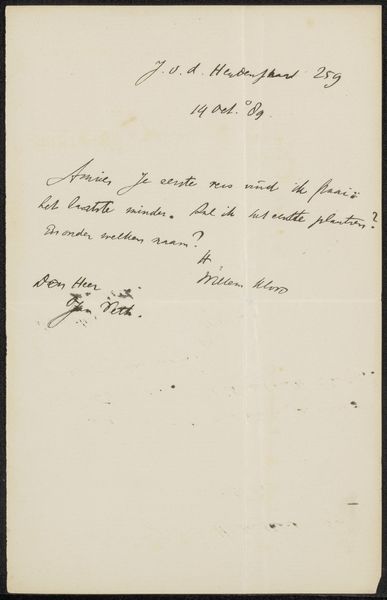 J. v. d. Heydenstraat 259
14 Oct. '89.
Amice, Je eerste vind ik fraai:
het laatste minder. Zal ik het eerste plaatsen?
En onder welken naam?
tt
Willem Kloos
Den Heer
Jan Veth.